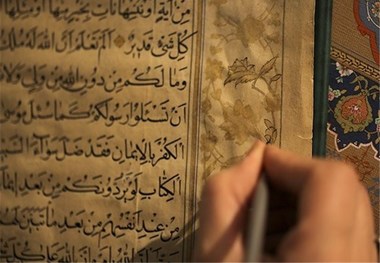 مِنْ آيَةٍ أَوْ نُنْسِهَا نَأْتِ بِخَيْرٍ مِنْهَا أَوْ مِثْلِهَا
كُلِّ شَيْءٍ قَدِيرٌ أَلَمْ تَعْلَمْ أَنَّ اللهَ لَهُ مُلْكُ
وَمَا لَكُمْ مِنْ دُونِ اللهِ مِنْ وَلِيٍّ وَلَا
أَنْ تَسْئَلُوا رَسُولَكُمْ كَمَا سُئِلَ مُوسَى
الْكُفْرَ بِالْإِيمَانِ فَقَدْ ضَلَّ سَوَاءَ
الْكِتَابِ لَوْ يَرُدُّونَكُمْ مِنْ بَعْدِ
مِنْ عِنْدِ أَنْفُسِهِمْ مِنْ بَعْدِ مَا تَبَيَّنَ
إِنَّ اللهَ عَلَى كُلِّ